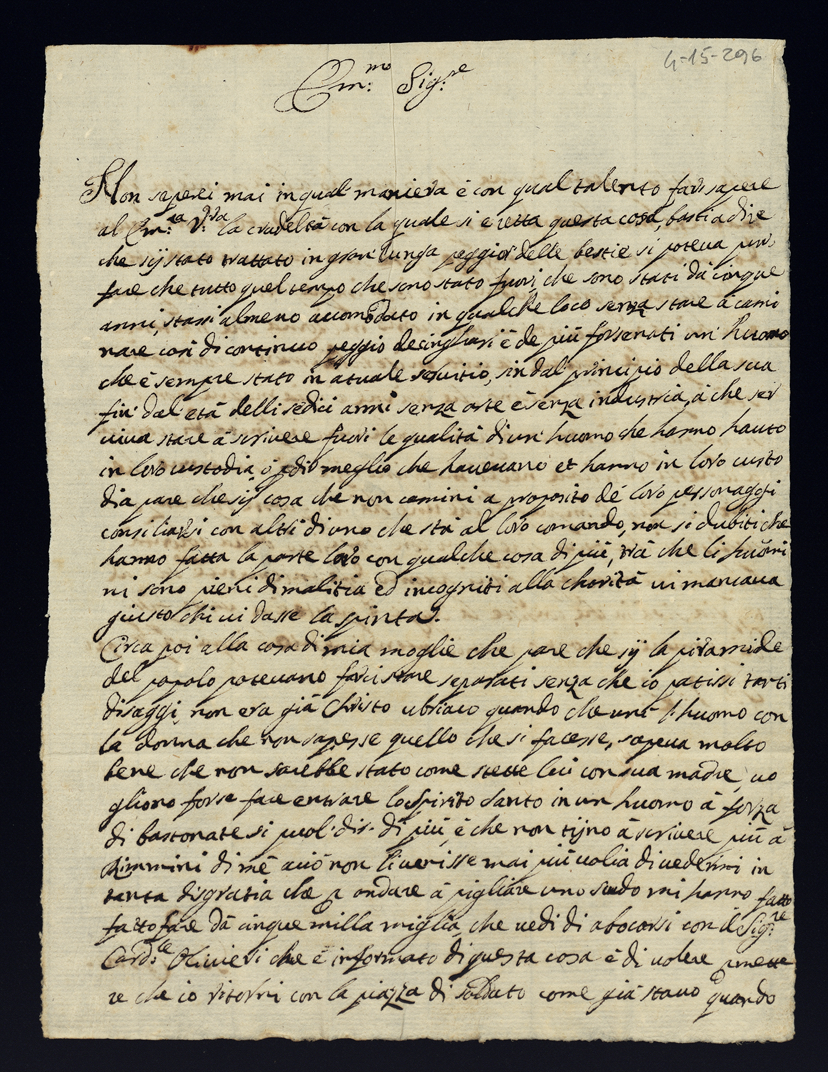 4-15-296
Em:mo Sig:re
Non saperei mai in qual maniera è con qual talento farsi sapere
al Em:za V:ra la crudeltà con la quale si è retta questa cosa, basti a dire
che sij stato trattato in gran lunga peggior delle bestie si poteva pur
fare che tutto quel tempo che sono stato fuori, che sono stati da cinque
anni, starsi almeno accomodato in qualche loco senza stare à cami
nare così di continuo peggio de cinghiari è de più forsenati un' huomo
che è sempre stato in atuale servitio, sin dal principio della sua
fin' dal età delli sedici anni senza arte è senza industria, à che ser
viva stare à scrivere fuori le qualità di un' huomo che hanno hauto
in loro custodia, ò p dir meglio che havevano et hanno in loro custo
dia pare che sij cosa che non camini a proposito de' loro personaggi
consiliarsi con altri di uno che stà al loro comando, non si dubiti che
hanno fatta la parte loro con qualche cosa di più, già che li huomi
ni sono pieni di malitia ed incogniti alla charità vi mancava
giusto chi vi dasse la spinta.
Circa poi alla cosa di mia moglie che pare che sij la piramide
del popolo potevano farci stare separati senza che io patissi tanti
disaggi, non era già Christo ubriaco quando che unì l'huomo con
la donna che non sapesse quello che si facesse, sapeva molto
bene che non sarebbe stato come stette lui con sua madre, vo
gliono forse fare entrare lo Spirito Santo in un huomo à forza
di bastonate si puol' dir di più, è che non tijno à scrivere più à
Rimmini di mè aciò non li venisse mai più voglia di vedermi in
tanta disgratia che p andare à pigliare uno scudo mi hanno fatto
fatto fare da cinque milla miglia, che vedi di abocarsi con il Sig:re
Card:le Olivieri che è informato di questa cosa è di volere pmette
re che io ritorni con la piazza di soldato come già stavo quando